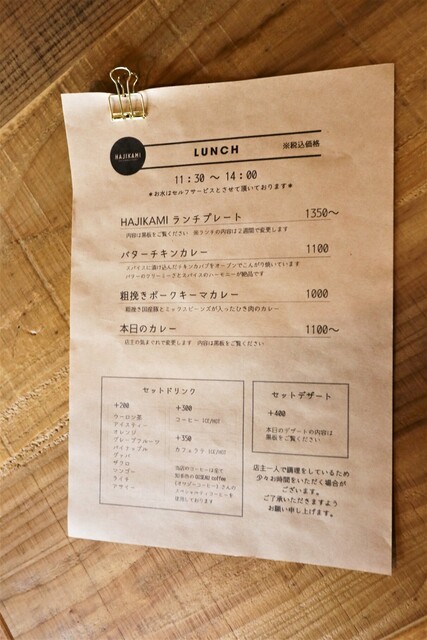 HAJIKAMI
LUNCH
※税込価格
11:30 〜 14:00
＊お水はセルフサービスとさせて頂いております＊
HAJIKAMI ランチプレート 1350〜
内容は黒板をご覧ください ※ランチの内容は２週間で変更します
バターチキンカレー 1100
スパイスに漬け込んだチキンカバブをオーブンでこんがり焼いています
バターのクリーミーさとスパイスのハーモニーが絶品です
粗挽きポークキーマカレー 1000
粗挽き国産豚とミックスビーンズが入ったひき肉のカレー
本日のカレー 1100〜
店主の気まぐれで変更します 内容は黒板をご覧ください
セットドリンク
+200
ウーロン茶
アイスティー
オレンジ
グレープフルーツ
パイナップル
グァバ
ザクロ
マンゴー
ライチ
アサイー
+300
コーヒー ICE/HOT
+350
カフェラテ ICE/HOT
当店のコーヒーは全て
coffee
さんの
スペシャルティコーヒーを
使用しております
セットデザート
+400
本日のデザートの内容は
黒板をご覧ください
店主一人で調理をしているため
少々お時間をいただく場合が
ございます。
ご了承いただきますよう
お願い申し上げます。